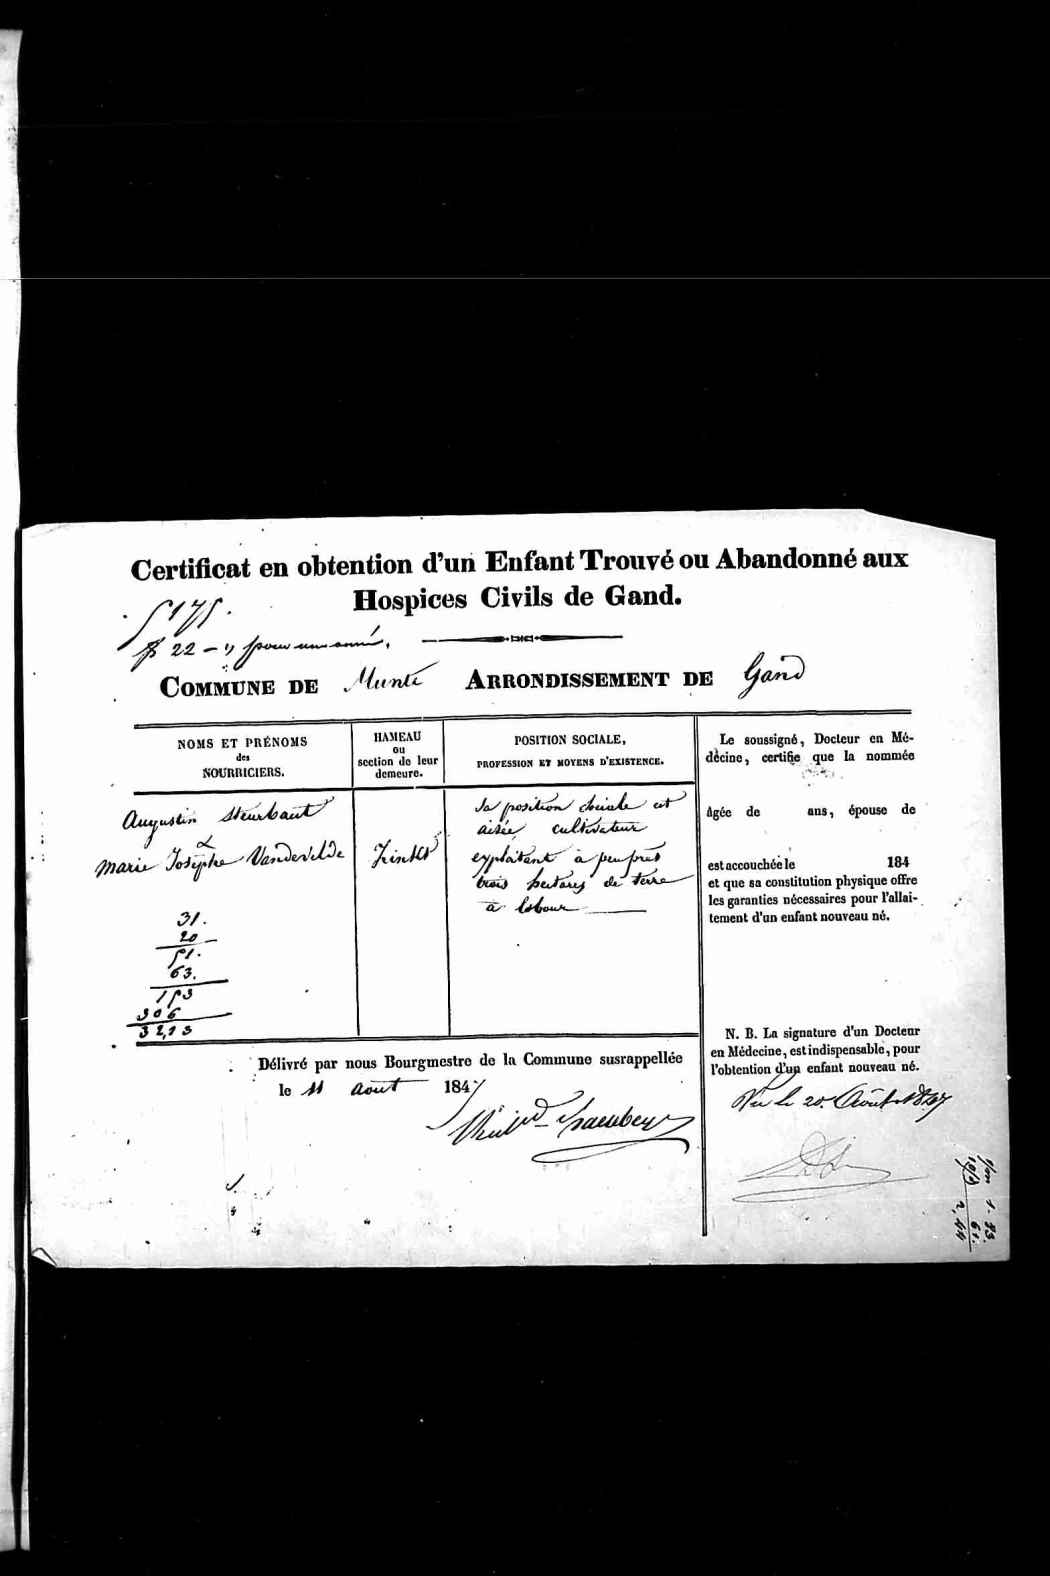 Certificat en obtention d'un Enfant Trouvé ou Abandonné aux
Hospices Civils de Gand.
5175.
22 - " pour une année.
COMMUNE DE Munte ARRONDISSEMENT DE Gand
NOMS ET PRÉNOMS
des
NOURRICIERS.
HAMEAU
ou
section de leur
demeure.
POSITION SOCIALE,
PROFESSION ET MOYENS D'EXISTENCE.
Augustin Steurbaut
&
Marie Josephe Vandevelde
sa position sociale est
aisée, cultivateur
exploitant à peu près
trois hectares de terre
à labour
31.
20
51.
63.
153
306
3213
Le soussigné, Docteur en Mé-
décine, certifie que la nommée
âgée de ans, épouse de
est accouchée le 184
et que sa constitution physique offre
les garanties nécessaires pour l'allai-
tement d'un enfant nouveau né.
N. B. La signature d'un Docteur
en Médecine, est indispensable, pour
l'obtention d'un enfant nouveau né.
Délivré par nous Bourgmestre de la Commune susrappellée
le 11 août 1847
Vu le 20 Août 1847
1 - 83
61.
2,44